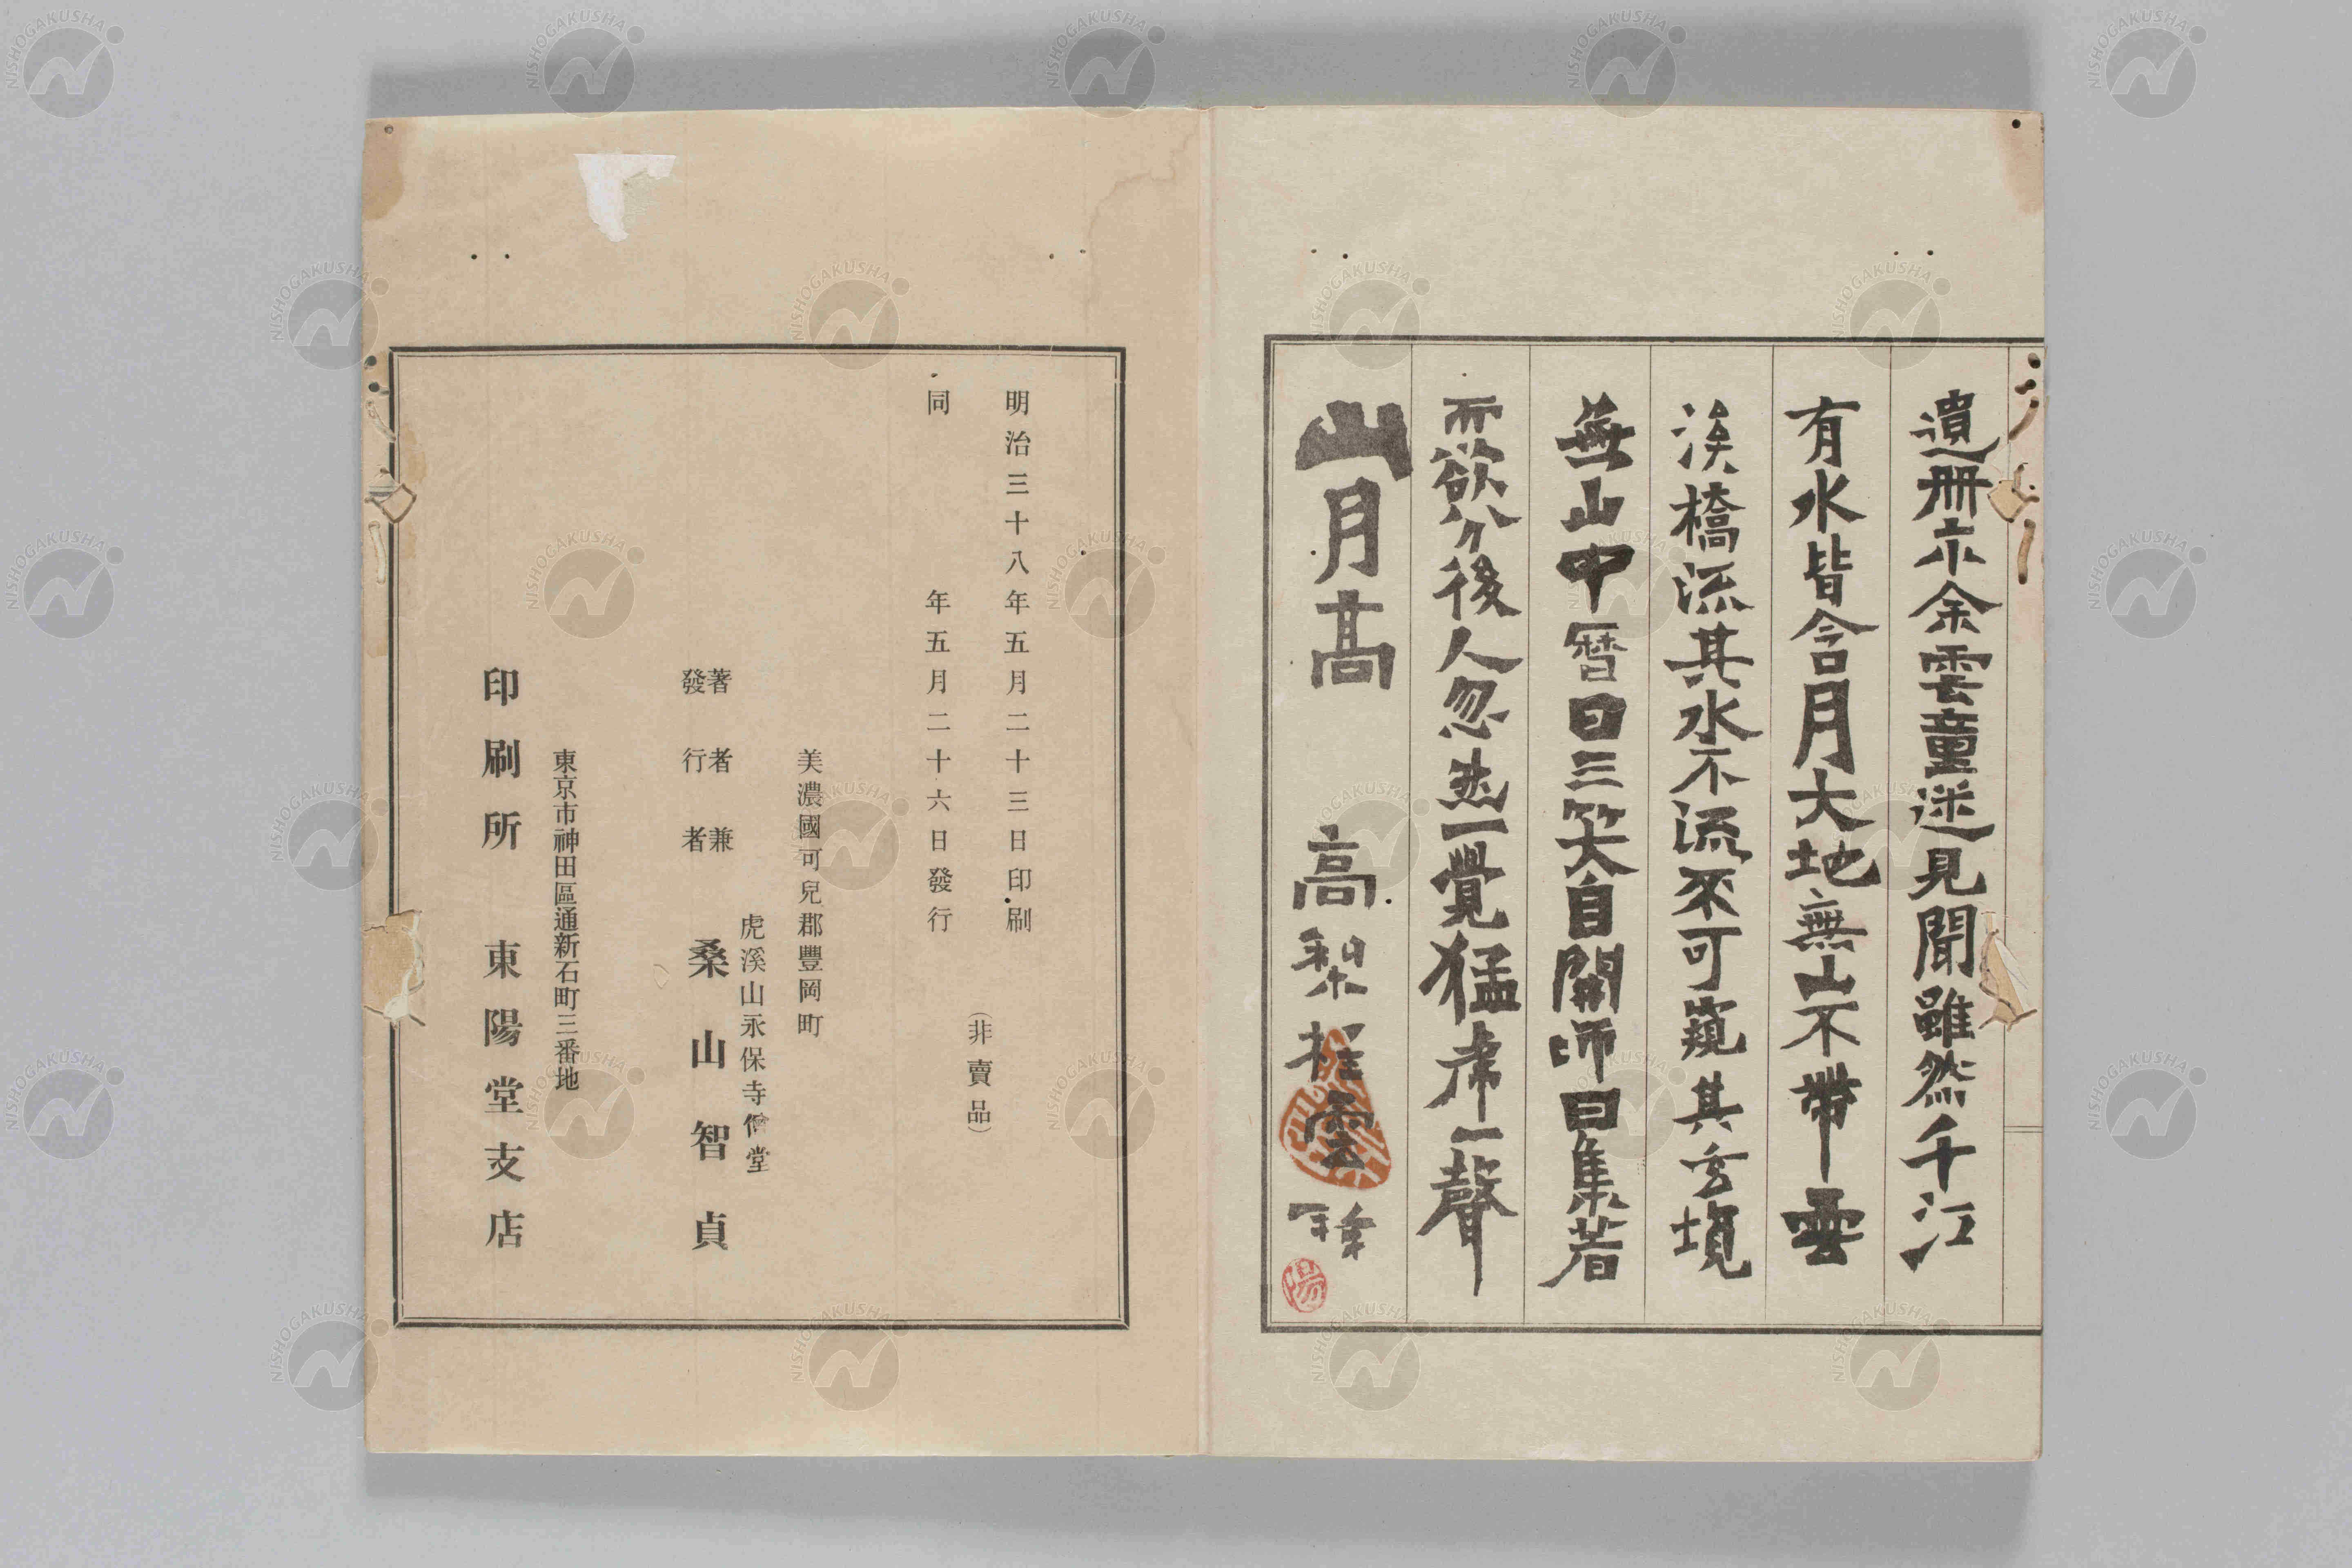 遺册示余雲童迷見聞雖然千江
有水皆含月大地無山不帶雲
溪橋流其水不流不可窺其玄境
無山中暦日三笑自開師曰集若
而欲後人忽然一覺猛席一聲
山月高 高梨
明治三十八年五月二十三日印刷
同 年五月二十六日發行
(非賣品)
美濃國可兒郡豐岡町
虎溪山永保寺僧堂
著者兼
發行者 桑山智貞
東京市神田區通新石町三番地
印刷所 東陽堂支店
NISHOGAKUSHA